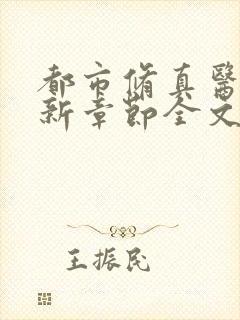 都市脩真醫
新章節全文
王振民